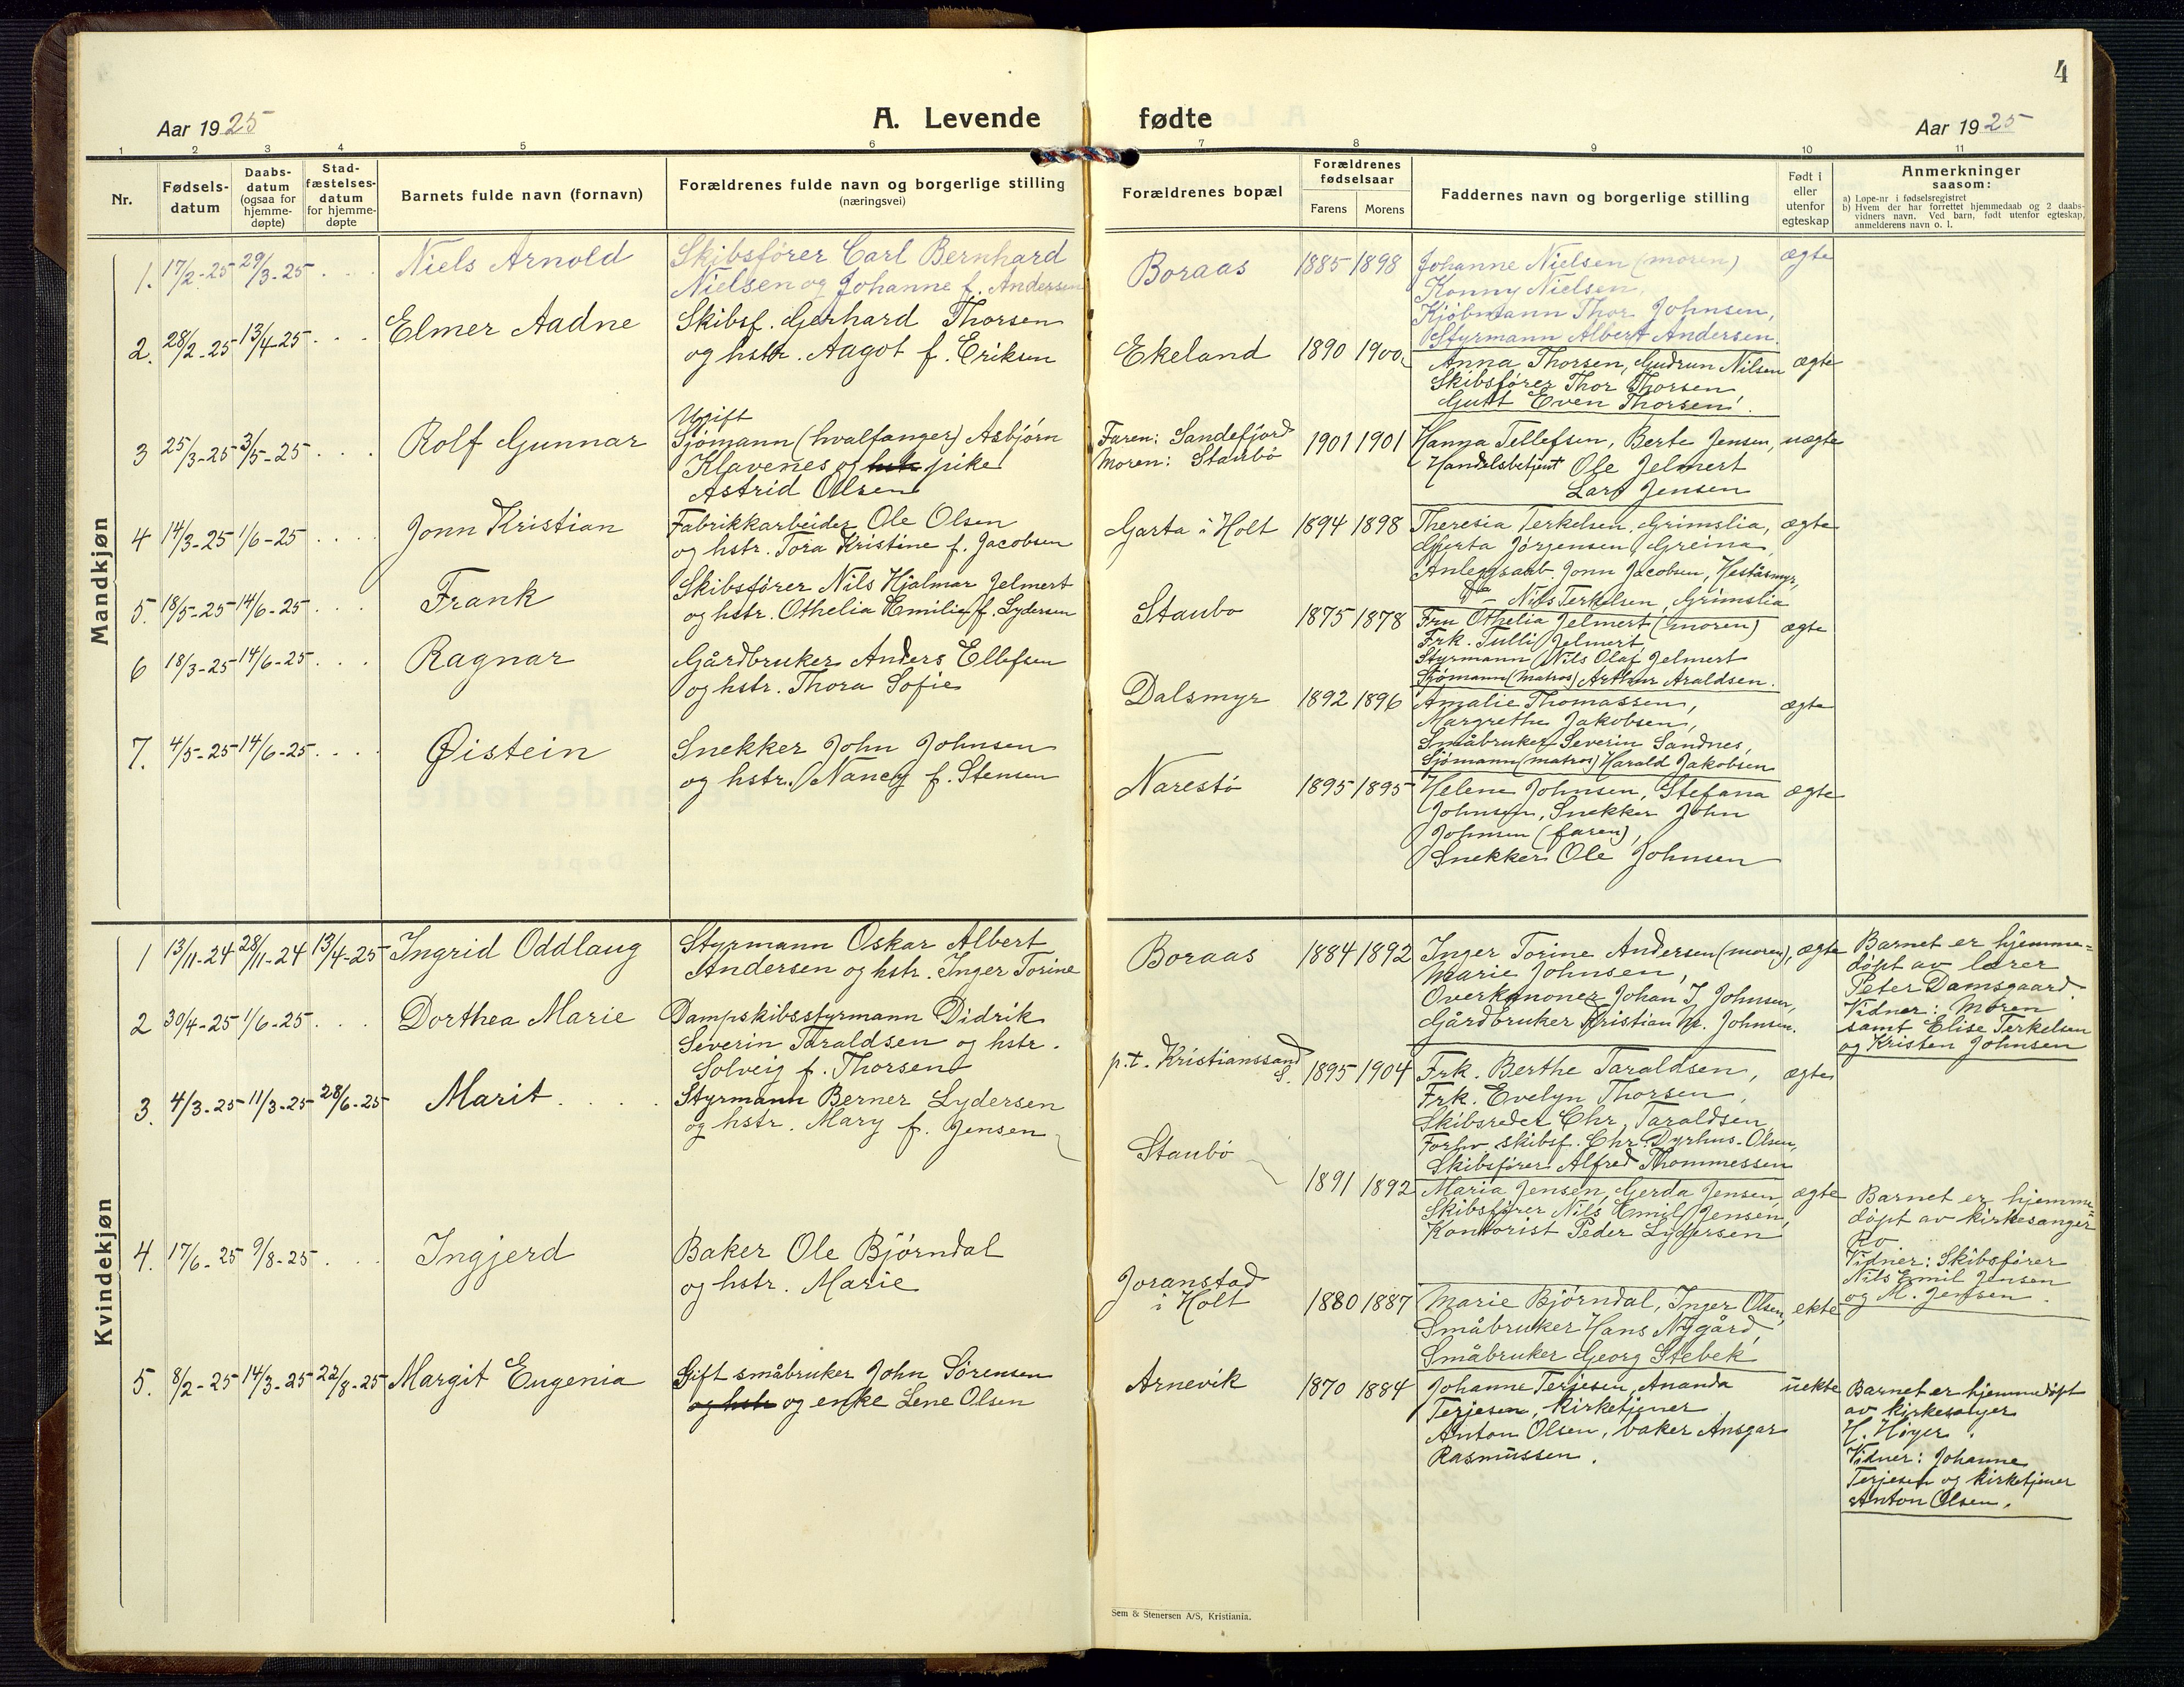 4
Aar 1925
A. Levende fødte
Aar 1925
1 2 3 4 5 6 7 8 9 10 11
Nr.
Fødselsdatum
Daabsdatum (ogsaa for hjemmedøpte)
Stadfæstelsesdatum for hjemmedøpte
Barnets fulde navn (fornavn)
Forældrenes fulde navn og borgerlige stilling
(næringsvei)
Forældrenes bopæl
Forældrenes fødselsaar
Farens Morens
Faddernes navn og borgerlige stilling
Født i eller utenfor egteskap
Anmerkninger
saasom:
a) Løpe-nr i fødselsregistret
b) Hvem der har forrettet hjemmedaab og 2 daabsvidners navn. Ved barn, født utenfor egteskap, anmelderens navn o. l.
Mandkjøn
1. 17/2-25 29/3-25 . . Niels Arnold
Skibsfører Carl Bernhard
Nielsen og Johanne f. Andersen
Boraas 1885 1898
Johanne Nielsen (moren)
Konny Nielsen,
Kjøbmann Thor Johnsen,
Styrmann Albert Andersen.
ægte
2. 28/2-25 13/4-25 . . . Elmer Aadne
Skibsf. Gerhard Thorsen
og hstr. Aagot f. Eriksen
Ekeland 1890 1900
Anna Thorsen, Gudrun Nilsen
Skibsfører Thor Thorsen
Gutt Even Thorsen.
ægte
3 25/3-25 3/5-25 . . . Rolf Gunnar
Ugift
Sjømann (hvalfanger) Asbjørn
Klavenes og hstr pike
Astrid Olsen
Faren: Sandefjord
Moren: Staubø
1901 1901
Hanna Tellefsen, Berte Jensen,
Handelsbetjent Ole Jelmert
Lars Jensen
uægte
4 14/3-25 1/6-25 . . . . Jonn Kristian
Fabrikkarbeider Ole Olsen
og hstr. Tora Kristine f. Jacobsen
Garta i Holt 1894 1898
Theresia Terkelsen, Grimslia,
Gjerta Jörgensen, Greina,
Anleggsarb. Jonn Jacobsen, Heståsmyr,
Do - Nils Terkelsen, Grimslia
ægte
5. 18/5-25 14/6-25 . . . Frank
Skibsfører Nils Hjalmar Jelmert
og hstr. Othelia Emilie f. Lydersen
Staubo 1875 1878
Fru Othelia Jelmert (moren)
Frk. Tulli Jelmert,
Styrmann Nils Olaf Jelmert
Sjømann (matros) Arthur Araldsen.
ægte
6 18/3-25 14/6-25 . . . Ragnar
Gårdbruker Anders Ellefsen
og hstr. Thora Sofie
Dalsmyr 1892 1896
Amalie Thomassen,
Margrethe Jakobsen,
Småbruker Severin Sandnes,
Sjømann (matros) Harald Jakobsen
ægte
7. 4/5-25 14/6-25 . . . Øistein
Snekker John Johnsen
og hstr. Nancy f. Stensen
Narestø 1895 1895
Helene Johnsen, Stefana
Johnsen, Snekker John
Johnsen (faren),
Snekker Ole Johnsen
ægte
Kvindekjøn
1 13/11-24 28/11-24 13/4-25 Ingrid Oddlaug
Styrmann Oskar Albert
Andersen og hstr. Inger Torine
Boraas 1884 1892
Inger Torine Andersen (moren),
Marie Johnsen,
Overkanoner Johan J. Johnsen,
Gårdbruker Kristian Kr. Johnsen.
ægte
Barnet er hjemme-
døpt av lærer
Peter Damsgaard.
Vidner: Moren
samt Elise Terkelsen
og Kristen Johnsen
2 30/4-25 1/6-25 . . . Dorthea Marie
Dampskibsstyrmann Didrik
Severin Taraldsen og hstr.
Solveig f. Thorsen
p.t. Kristianssand S.
1895 1904
Frk. Berthe Taraldsen,
Frk. Evelyn Thorsen,
Skibsreder Chr. Taraldsen,
Forhv skibsf. Chr. Dyrhus-Olsen,
Skibsfører Alfred Thommessen
ægte
3. 4/3-25 11/3-25 28/6-25 Marit . . .
Styrmann Berner Lydersen
og hstr. Mary f. Jensen
Staubø 1891 1892
Maria Jensen, Gerda Jensen,
Skibsfører Nils Emil Jensen,
Kontorist Peder Lydersen
ægte
Barnet er hjemme-
døpt av kirkesanger
Ro
Vidner: Skibsfører
Nils Emil Jensen
og M. Jensen.
4. 17/6-25 9/8-25 . . . Ingjerd
Baker Ole Bjørndal
og hstr. Marie
Joranstad
i Holt
1880 1887
Marie Bjørndal, Inger Olsen,
Småbruker Hans Nygård,
Småbruker Georg Stebek
ekte
5. 8/2-25 14/3-25 22/8-25 Margit Eugenia
Gift småbruker John Sørensen
og hstr og enke Lene Olsen
Arnevik 1870 1884
Johanne Terjesen, Ananda
Terjesen, kirketjener
Anton Olsen, baker Ansgar
Rasmussen.
uekte
Barnet er hjemmedøpt
av kirkesanger
H. Høyer.
Vidner: Johanne
Terjesen og kirketjener
Anton Olsen.
Sem & Stenersen A/S, Kristiania.